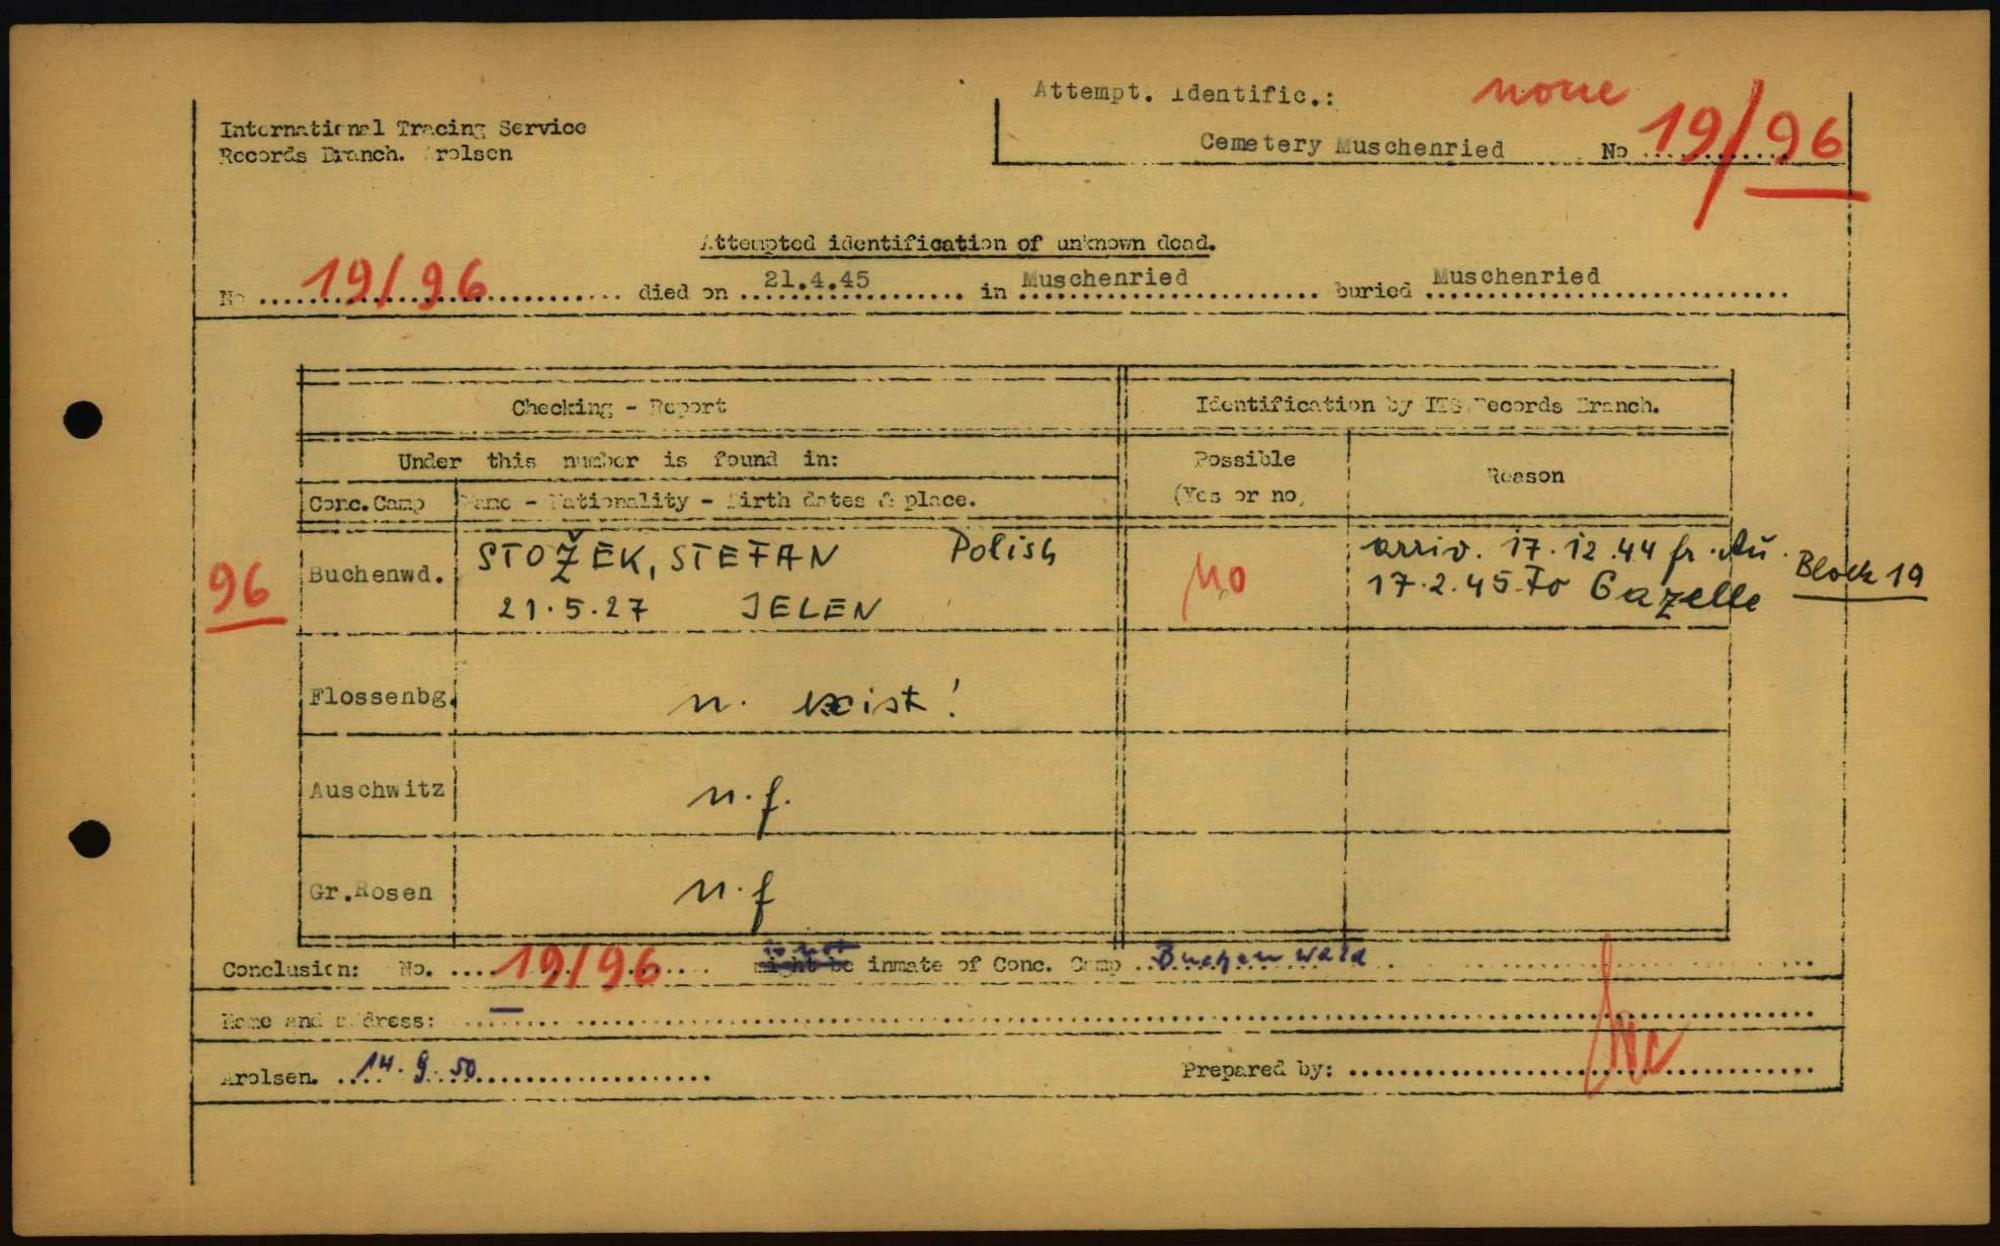 Attempt. Identific.: none
International Tracing Service
Records Branch. Arolsen
Cemetery Muschenried No 19/96
Attempted identification of unknown dead.
No 19/96 died on 21.4.45 in Muschenried buried Muschenried
Checking - Report Identification by ITS Records Branch.
Under this number is found in: Possible
(Yes or no) Reason
Conc.Camp Name - Nationality - Birth dates & place.
96 Buchenwd. STOŽEK, STEFAN Polish no arriv. 17.12.44 fr. Au. Block 19
21.5.27 JELEN 17.2.45 to Gazelle
Flossenbg. n. exist!
Auschwitz n.f.
Gr.Rosen n.f
Conclusion: No. 19/96 is not might be inmate of Conc. Camp Buchenwald
Name and address: —
Arolsen. 14.9.50 Prepared by: